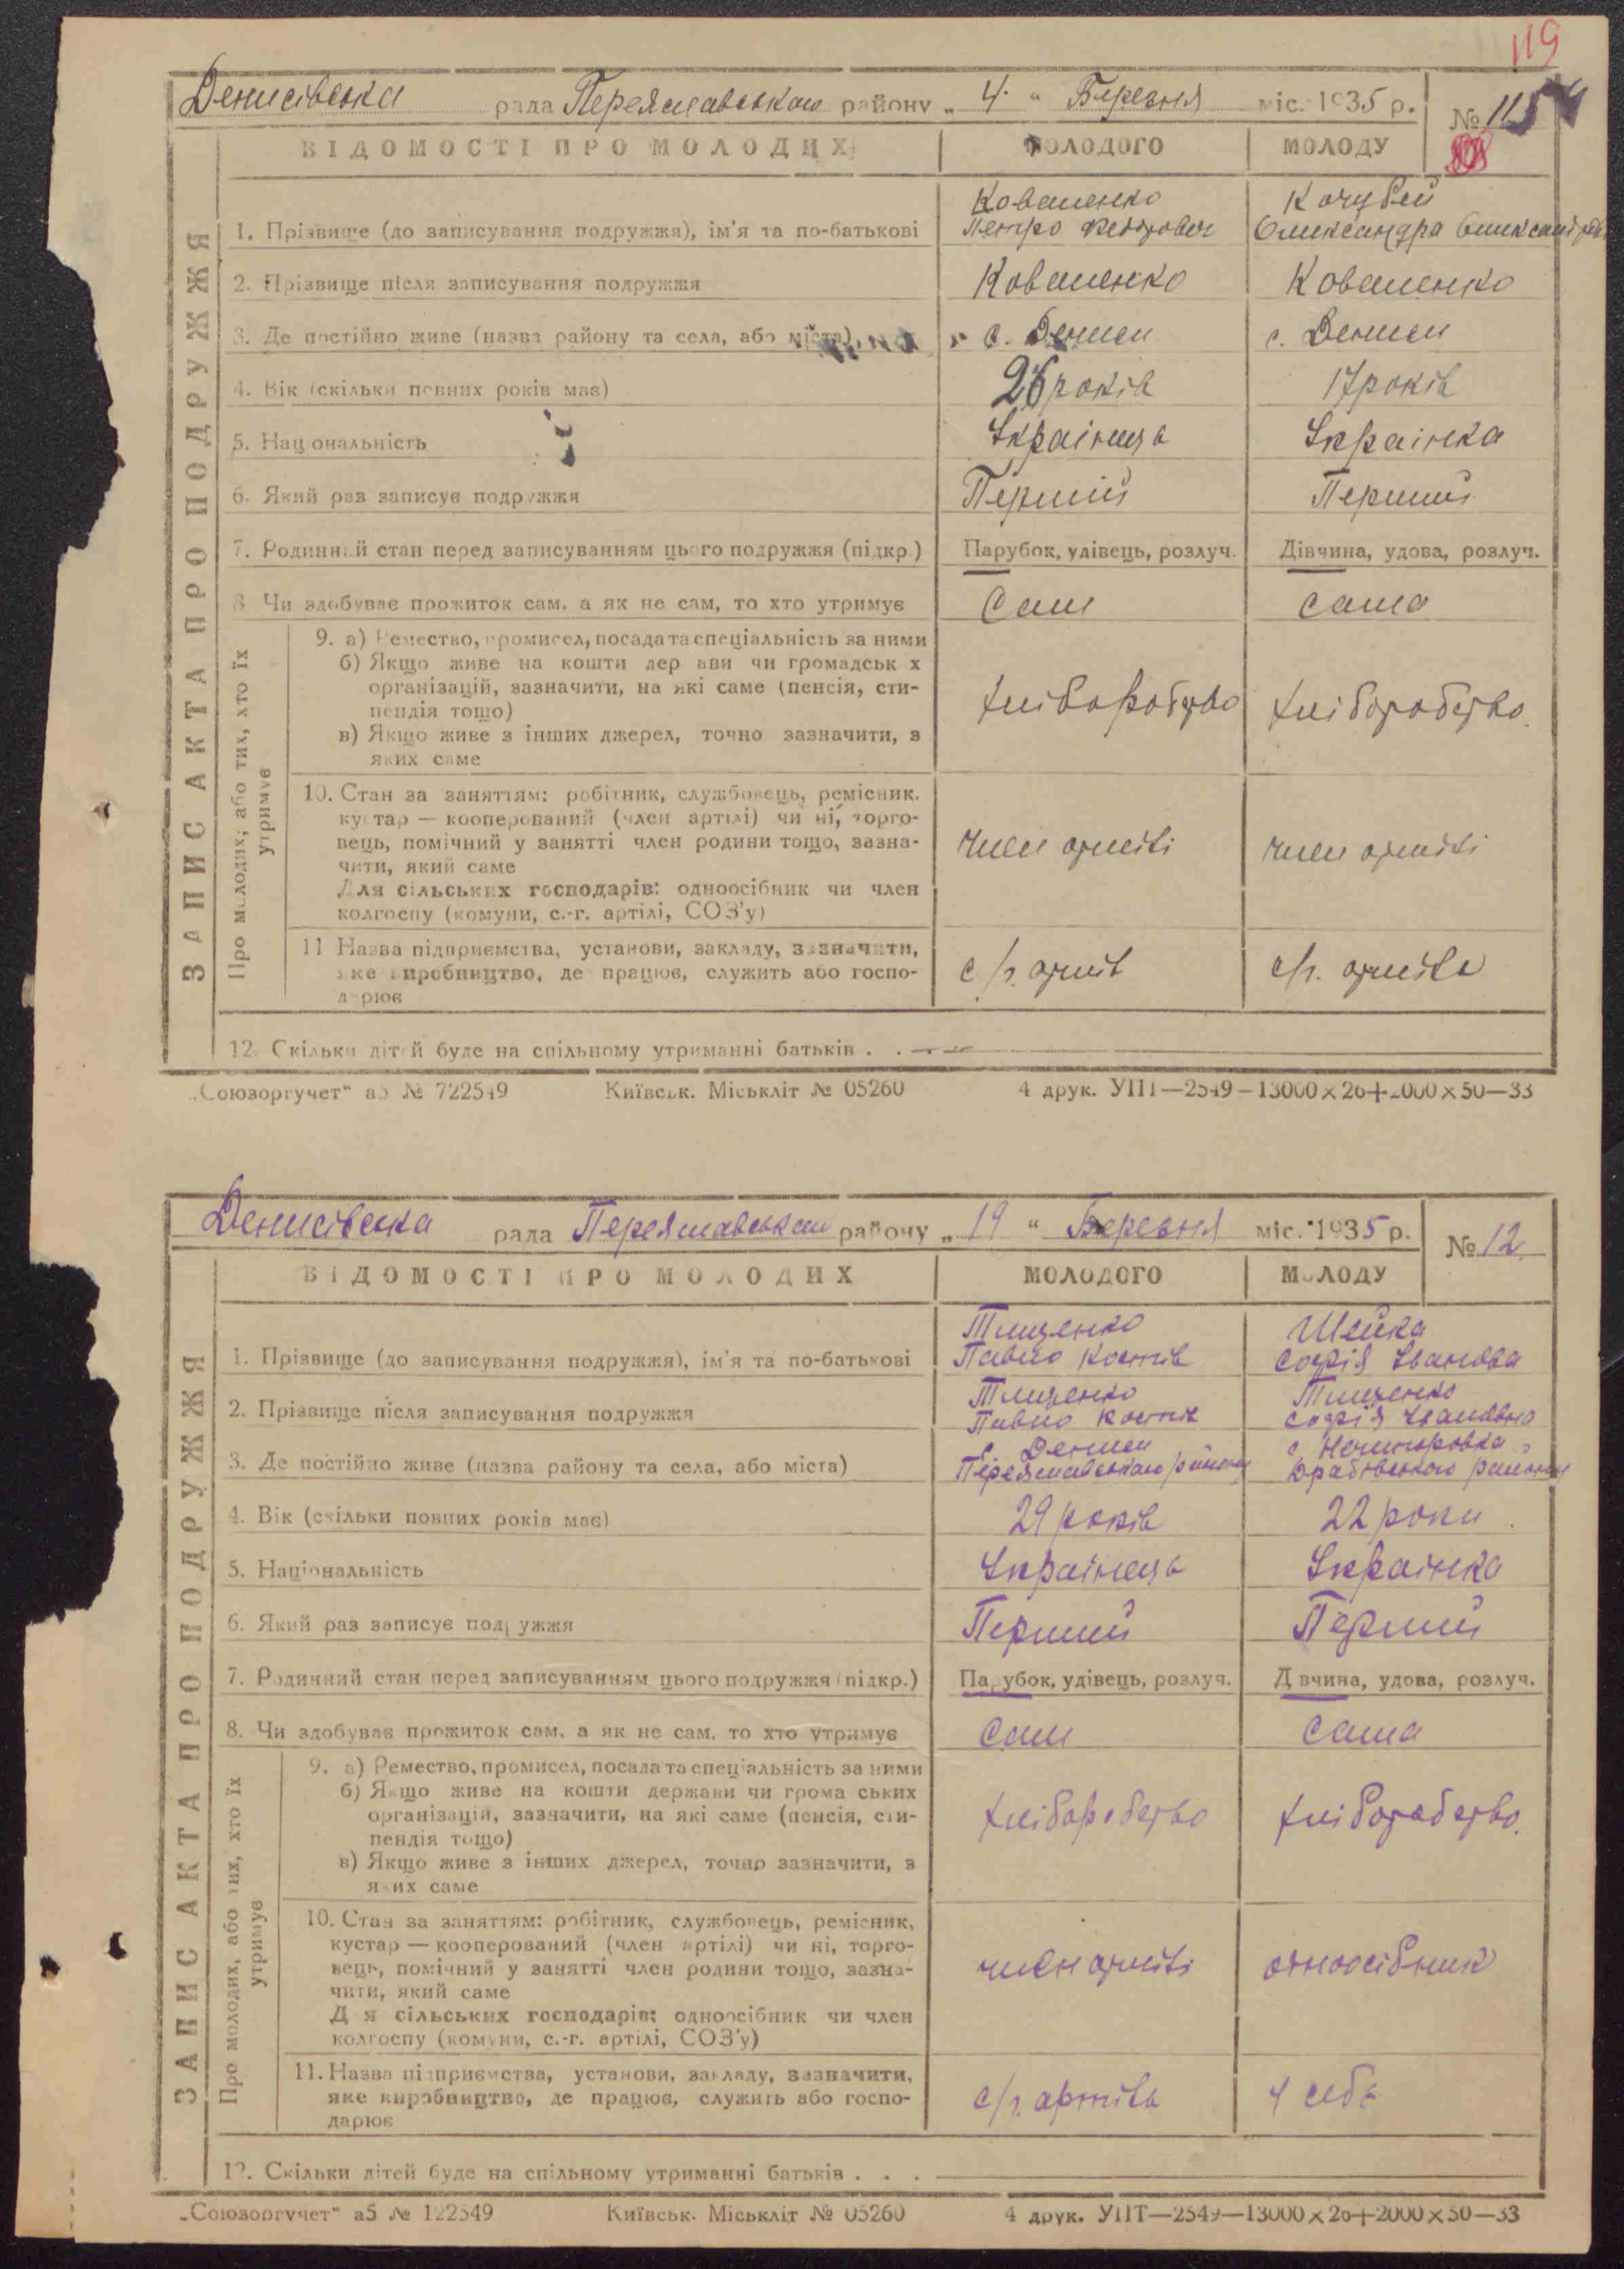 119
Денисівська рада Переяславського району „ 4 “ Березня міс. 1935 р. № 11
ВІДОМОСТІ ПРО МОЛОДИХ МОЛОДОГО МОЛОДУ
ЗАПИС АКТА ПРО ПОДРУЖЖЯ
Коваленко Кочубей
1. Прізвище (до записування подружжя), ім'я та по-батькові Петро Федорович Олександра
2. Прізвище після записування подружжя Коваленко Коваленко
3. Де постійно живе (назва району та села, або міста) с. Дениси с. Дениси
4. Вік (скільки повних років має) 26 років 17 років
5. Національність Українець Українка
6. Який раз записує подружжя Перший Перший
7. Родинний стан перед записуванням цього подружжя (підкр.) Парубок, удівець, розлуч. Дівчина, удова, розлуч.
8 Чи здобуває прожиток сам, а як не сам, то хто утримує Сам сама
Про молодих; або тих, хто їх утримує
9. а) Ремество, промисел, посада та спеціальність за ними
б) Якщо живе на кошти держави чи громадських
організацій, зазначити, на які саме (пенсія, сти-
пендія тощо) хліборобство хліборобство
в) Якщо живе з інших джерел, точно зазначити, з
яких саме
10. Стан за заняттям: робітник, службовець, ремісник.
кустар — кооперований (член артілі) чи ні, торго-
вець, помічний у занятті член родини тощо, зазна- член артілі член артілі
чити, який саме
Для сільських господарів: одноосібник чи член
колгоспу (комуни, с.-г. артілі, СОЗ'у)
11 Назва підприємства, установи, закладу, зазначити,
яке виробництво, де працює, служить або госпо- с/г. артіль с/г. артіль
дарює
12. Скільки дітей буде на спільному утриманні батьків . .
„Союзоргучет“ а5 № 722549 Київськ. Міськліт № 05260 4 друк. УПП—2549—13000×26+2000×50—33
Денисівська рада Переяславського району „ 19 “ Березня міс. 1935 р. № 12
ВІДОМОСТІ ПРО МОЛОДИХ МОЛОДОГО МОЛОДУ
ЗАПИС АКТА ПРО ПОДРУЖЖЯ
Тищенко Шейка
1. Прізвище (до записування подружжя), ім'я та по-батькові Павло Костів Софія Іванова
Тищенко Тищенко
2. Прізвище після записування подружжя Павло Софія Іванівна
с. Дениси с.
3. Де постійно живе (назва району та села, або міста) Переяславського району Драбівського району
4. Вік (скільки повних років має) 29 років 22 роки
5. Національність Українець Українка
6. Який раз записує подружжя Перший Перший
7. Родинний стан перед записуванням цього подружжя (підкр.) Парубок, удівець, розлуч. Дівчина, удова, розлуч.
8. Чи здобуває прожиток сам, а як не сам, то хто утримує Сам Сама
Про молодих, або тих, хто їх утримує
9. а) Ремество, промисел, посада та спеціальність за ними
б) Якщо живе на кошти держави чи громадських
організацій, зазначити, на які саме (пенсія, сти- хліборобство хліборобство.
пендія тощо)
в) Якщо живе з інших джерел, точно зазначити, з
яких саме
10. Стан за заняттям: робітник, службовець, ремісник,
кустар — кооперований (член артілі) чи ні, торго-
вець, помічний у занятті член родини тощо, зазна- член артілі одноосібник
чити, який саме
Для сільських господарів: одноосібник чи член
колгоспу (комуни, с.-г. артілі, СОЗ'у)
11. Назва підприємства, установи, закладу, зазначити,
яке виробництво, де працює, служить або госпо- с/г. артіль у себе
дарює
12. Скільки дітей буде на спільному утриманні батьків . . .
„Союзоргучет“ а5 № 122549 Київськ. Міськліт № 05260 4 друк. УПТ—2549—13000×26+2000×50—33